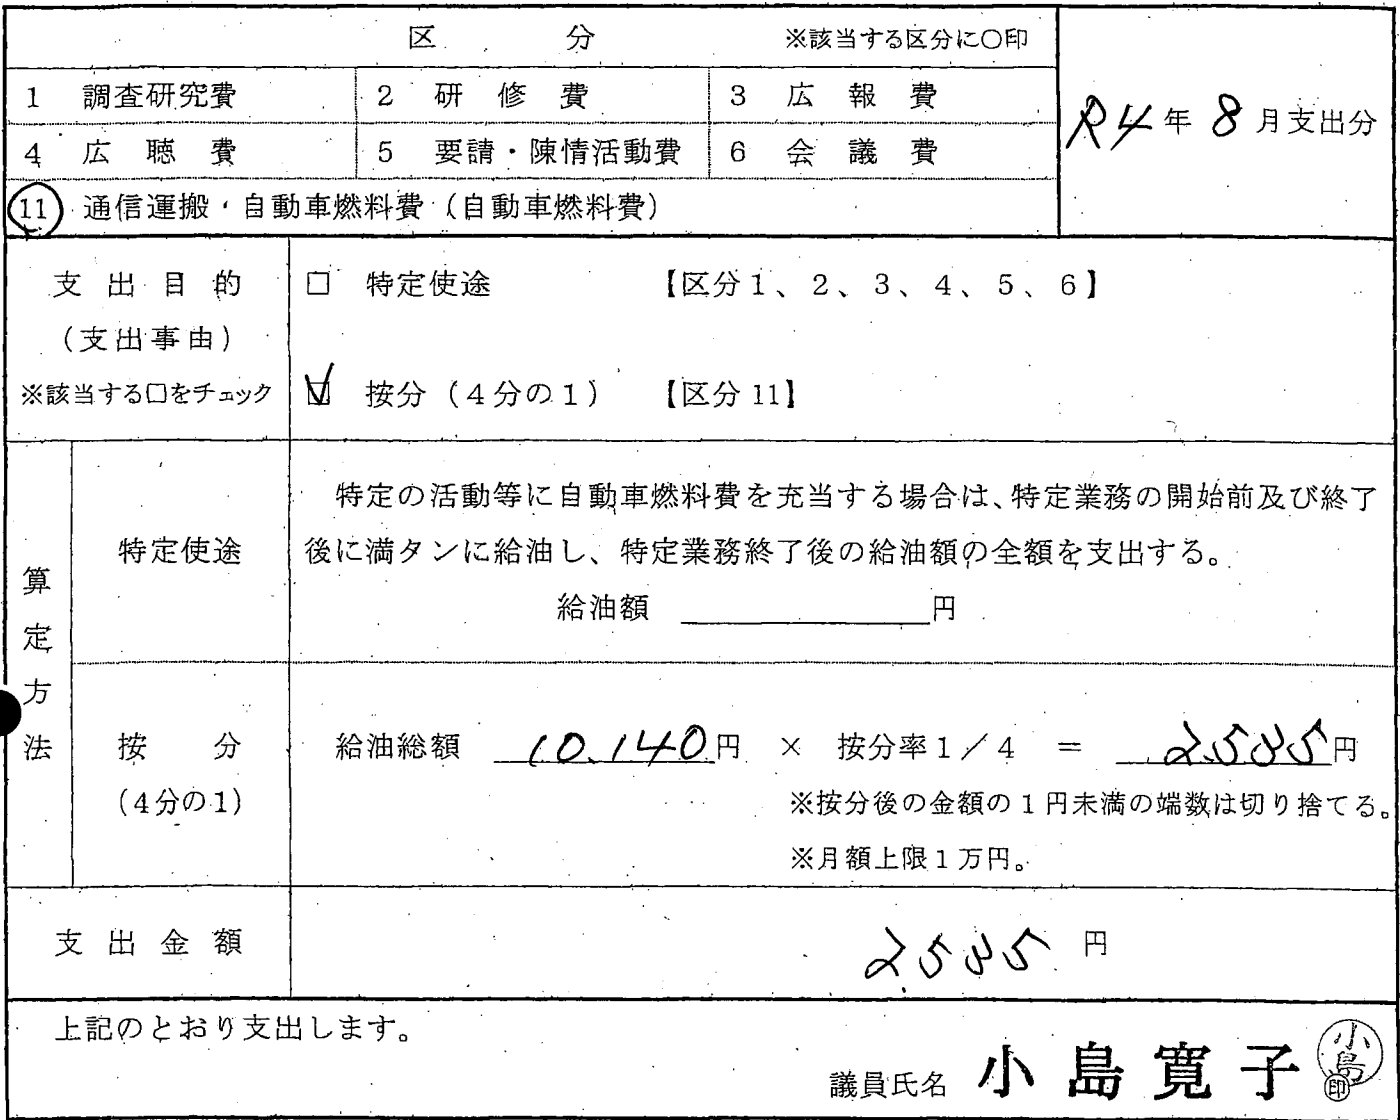 区　　分　　※該当する区分に〇印
1　調査研究費　2　研修費　3　広報費
R4年 8月支出分
4　広聴費　5　要請・陳情活動費　6　会議費
11　通信運搬・自動車燃料費（自動車燃料費）
支出目的　□　特定使途　【区分1、2、3、4、5、6】
（支出事由）
※該当する□をチェック　☑　按分（4分の1）　【区分11】
算定方法
特定使途
特定の活動等に自動車燃料費を充当する場合は、特定業務の開始前及び終了
後に満タンに給油し、特定業務終了後の給油額の全額を支出する。
給油額　＿＿＿＿＿＿円
按分　給油総額　10.140円　×　按分率1／4　＝　2.535円
（4分の1）　※按分後の金額の1円未満の端数は切り捨てる。
※月額上限1万円。
支出金額　2535 円
上記のとおり支出します。
議員氏名　小島寛子 小島 印